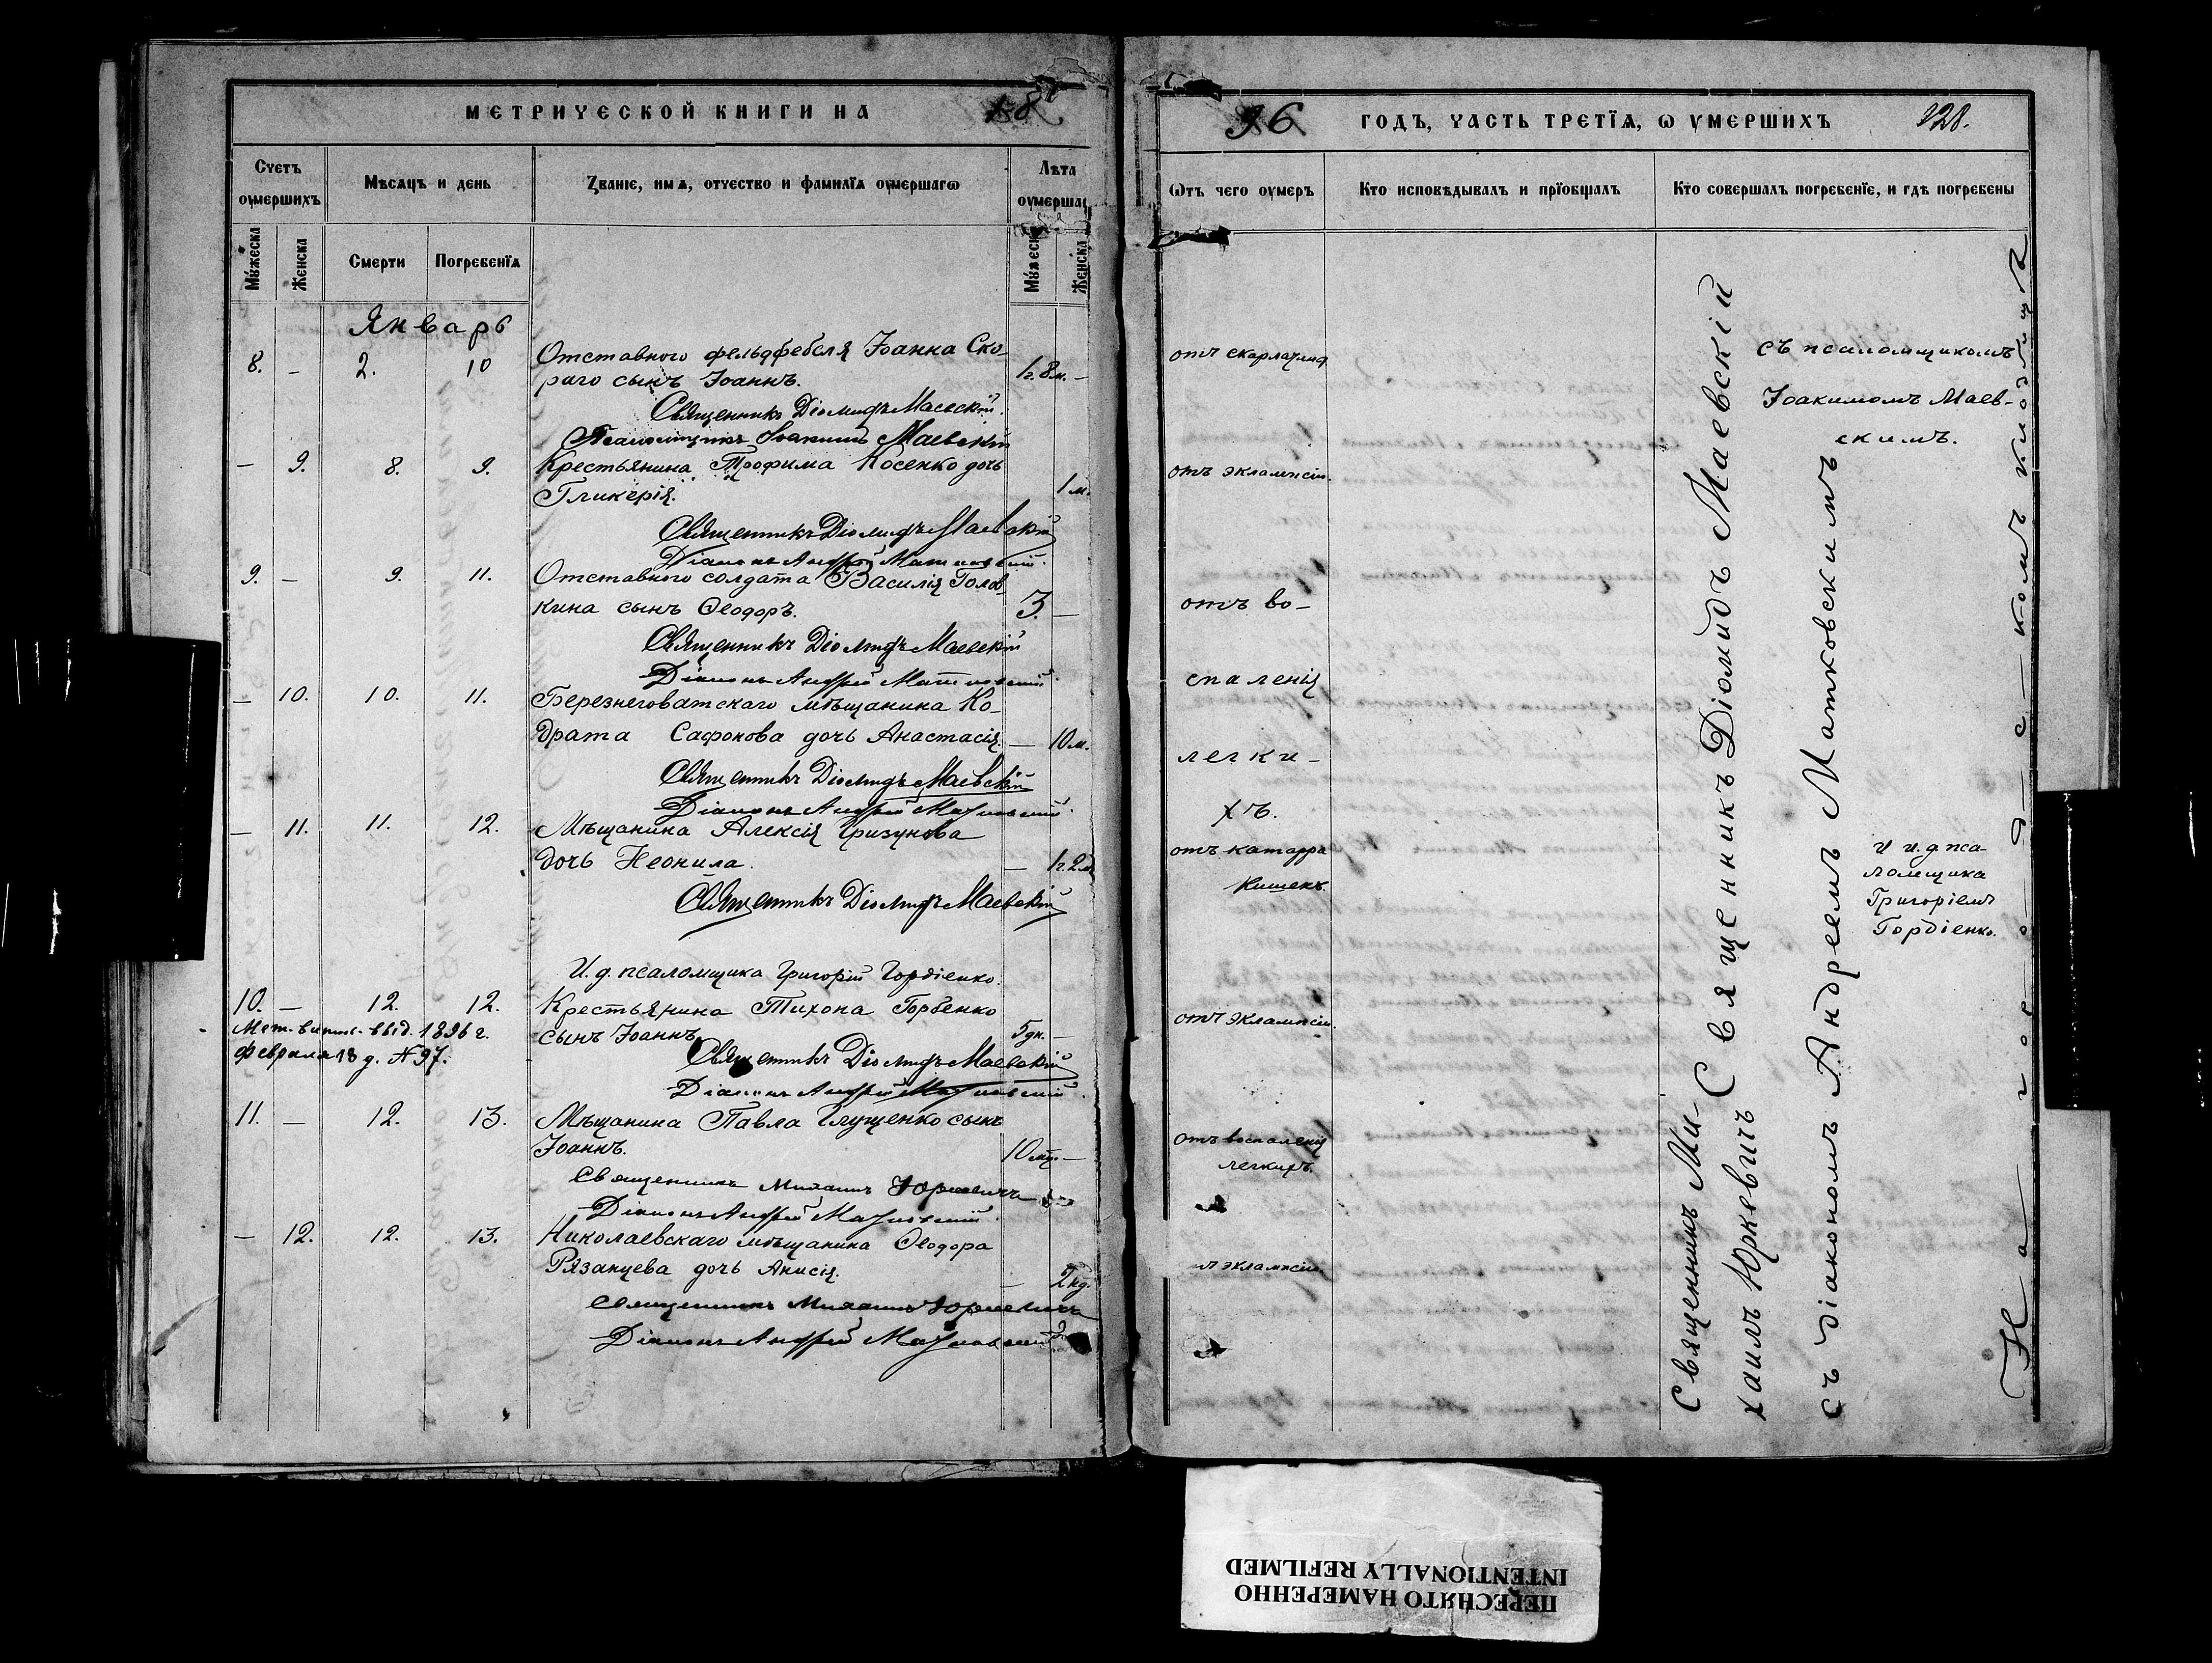 МЕТРИЧЕСКОЙ КНИГИ НА 18
Счетъ умершихъ
Мѣсяцъ и день
Званіе, имя, отчество и фамилія умершагѡ
Лѣта умершаг
Мужеска
Женска
Смерти
Погребенія
Мужеск
Женска
Январь
8. — 2. 10 Отставного фельдфебеля Іоанна Ско-
раго сынъ Іоаннъ. 1г. 8м. —
Священникъ Діомидъ Маевскій.
Псаломщикъ Іоакимъ Маевскій
— 9. 8. 9. Крестьянина Трофима Косенко дочь
Гликерія. 1 м.
Священникъ Діомидъ Маевскій
Діаконъ Андрей Матковскій.
9. — 9. 11. Отставного солдата Василія Голов-
кина сынъ Ѳеодоръ. 3. —
Священникъ Діомидъ Маевскій
Діаконъ Андрей Матковскій.
— 10. 10. 11. Березнеговатскаго мѣщанина Ко-
драта Сафонова дочь Анастасія. — 10 м.
Священникъ Діомидъ Маевскій
Діаконъ Андрей Матковскій.
— 11. 11. 12. Мѣщанина Алексія Гризунова
дочь Неонила. — 1г. 2м
Священникъ Діомидъ Маевскій
И. д. псаломщика Григорій Гордіенко.
10. — 12. 12. Крестьянина Тихона Горбенко
сынъ Іоаннъ 5 дн. —
Мет. выпис. выд. 1896 г.
февраля 18 д. № 97.
Священникъ Діомидъ Маевскій
Діаконъ Андрей Матковскій.
11. — 12. 13. Мѣщанина Павла Глущенко сынъ
Іоаннъ. 10 мц. —
Священникъ Михаилъ Юркевичъ
Діаконъ Андрей Матковскій.
— 12. 12. 13. Николаевскаго мѣщанина Ѳеодора
Рязанцева дочь Анисія. — 2 нд.
Священникъ Михаилъ Юркевичъ
Діаконъ Андрей Матковскій
96 ГОДЪ, ЧАСТЬ ТРЕТІЯ, Ѡ УМЕРШИХЪ 128.
Ѿтъ чего умеръ
Кто исповѣдывалъ и пріобщалъ
Кто совершалъ погребеніе, и гдѣ погребены
отъ скарлатины
отъ эклампсіи.
отъ во-
спаленія
легки-
хъ.
отъ катарра
кишекъ.
отъ эклампсіи.
отъ воспаленія
легкихъ.
отъ эклампсіи
Священникъ Діомидъ Маевскій
Священникъ Ми-
хаилъ Юркевичъ
съ діакономъ Андреемъ Матковскимъ
съ псаломщикомъ
Іоакимомъ Маев-
скимъ.
и и. д. пса-
ломщика
Григоріемъ
Гордіенко.
На городскомъ кладбищѣ
ПЕРЕСНЯТО НАМЕРЕННО
INTENTIONALLY REFILMED